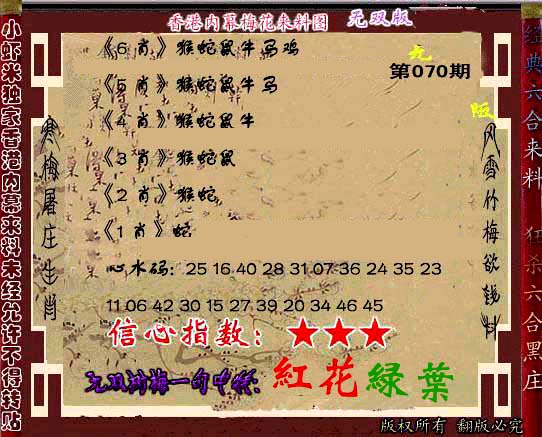 香港内幕梅花来料图 无双版
第070期
无
版
《6肖》猴蛇鼠牛马鸡
《5肖》猴蛇鼠牛马
《4肖》猴蛇鼠牛
《3肖》猴蛇鼠
《2肖》猴蛇
《1肖》蛇
心水码: 25 16 40 28 31 07 36 24 35 23
11 06 42 30 15 27 39 20 34 46 45
信心指数: ★★★
红花绿葉
小虾米独家香港内幕来料未经允许不得转贴
寒梅屠庄生肖
风雪竹梅欲钱料
经典六合来料 狂杀六合黑庄
版权所有 翻版必究